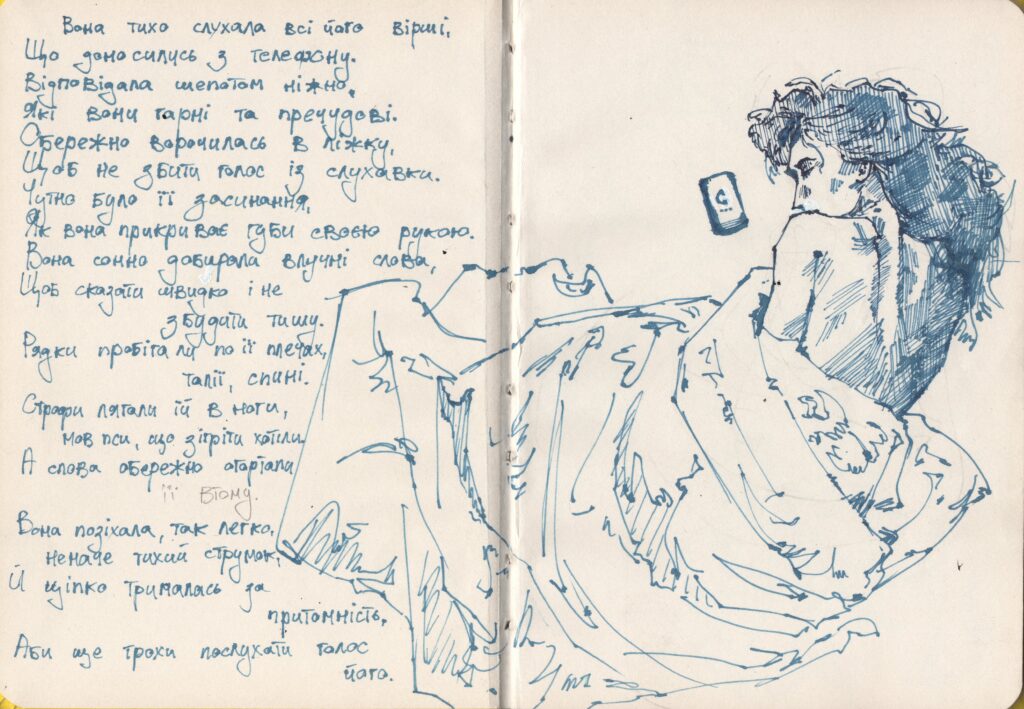 Вона тихо слухала всі його вірші,
Що доносились з телефону.
Відповідала шепотом ніжно,
Які вони гарні та пречудові.
Обережно ворочилась в ліжку,
Щоб не збити голос із слухавки.
Чутно було її засинання,
Як вона прикриває губи своєю рукою.
Вона сонно добирала влучні слова,
Щоб сказати швидко і не
збудити тишу.
Рядки пробігали по її плечах,
талії, спині.
Строфи лягали їй в ноги,
мов пси, що зігріти хотіли
А слова обережно огортали
її втому.
Вона позіхала, так легко,
неначе тихий струмок,
Й щіпко трималась за
притомність,
Аби ще трохи послухати голос
його.